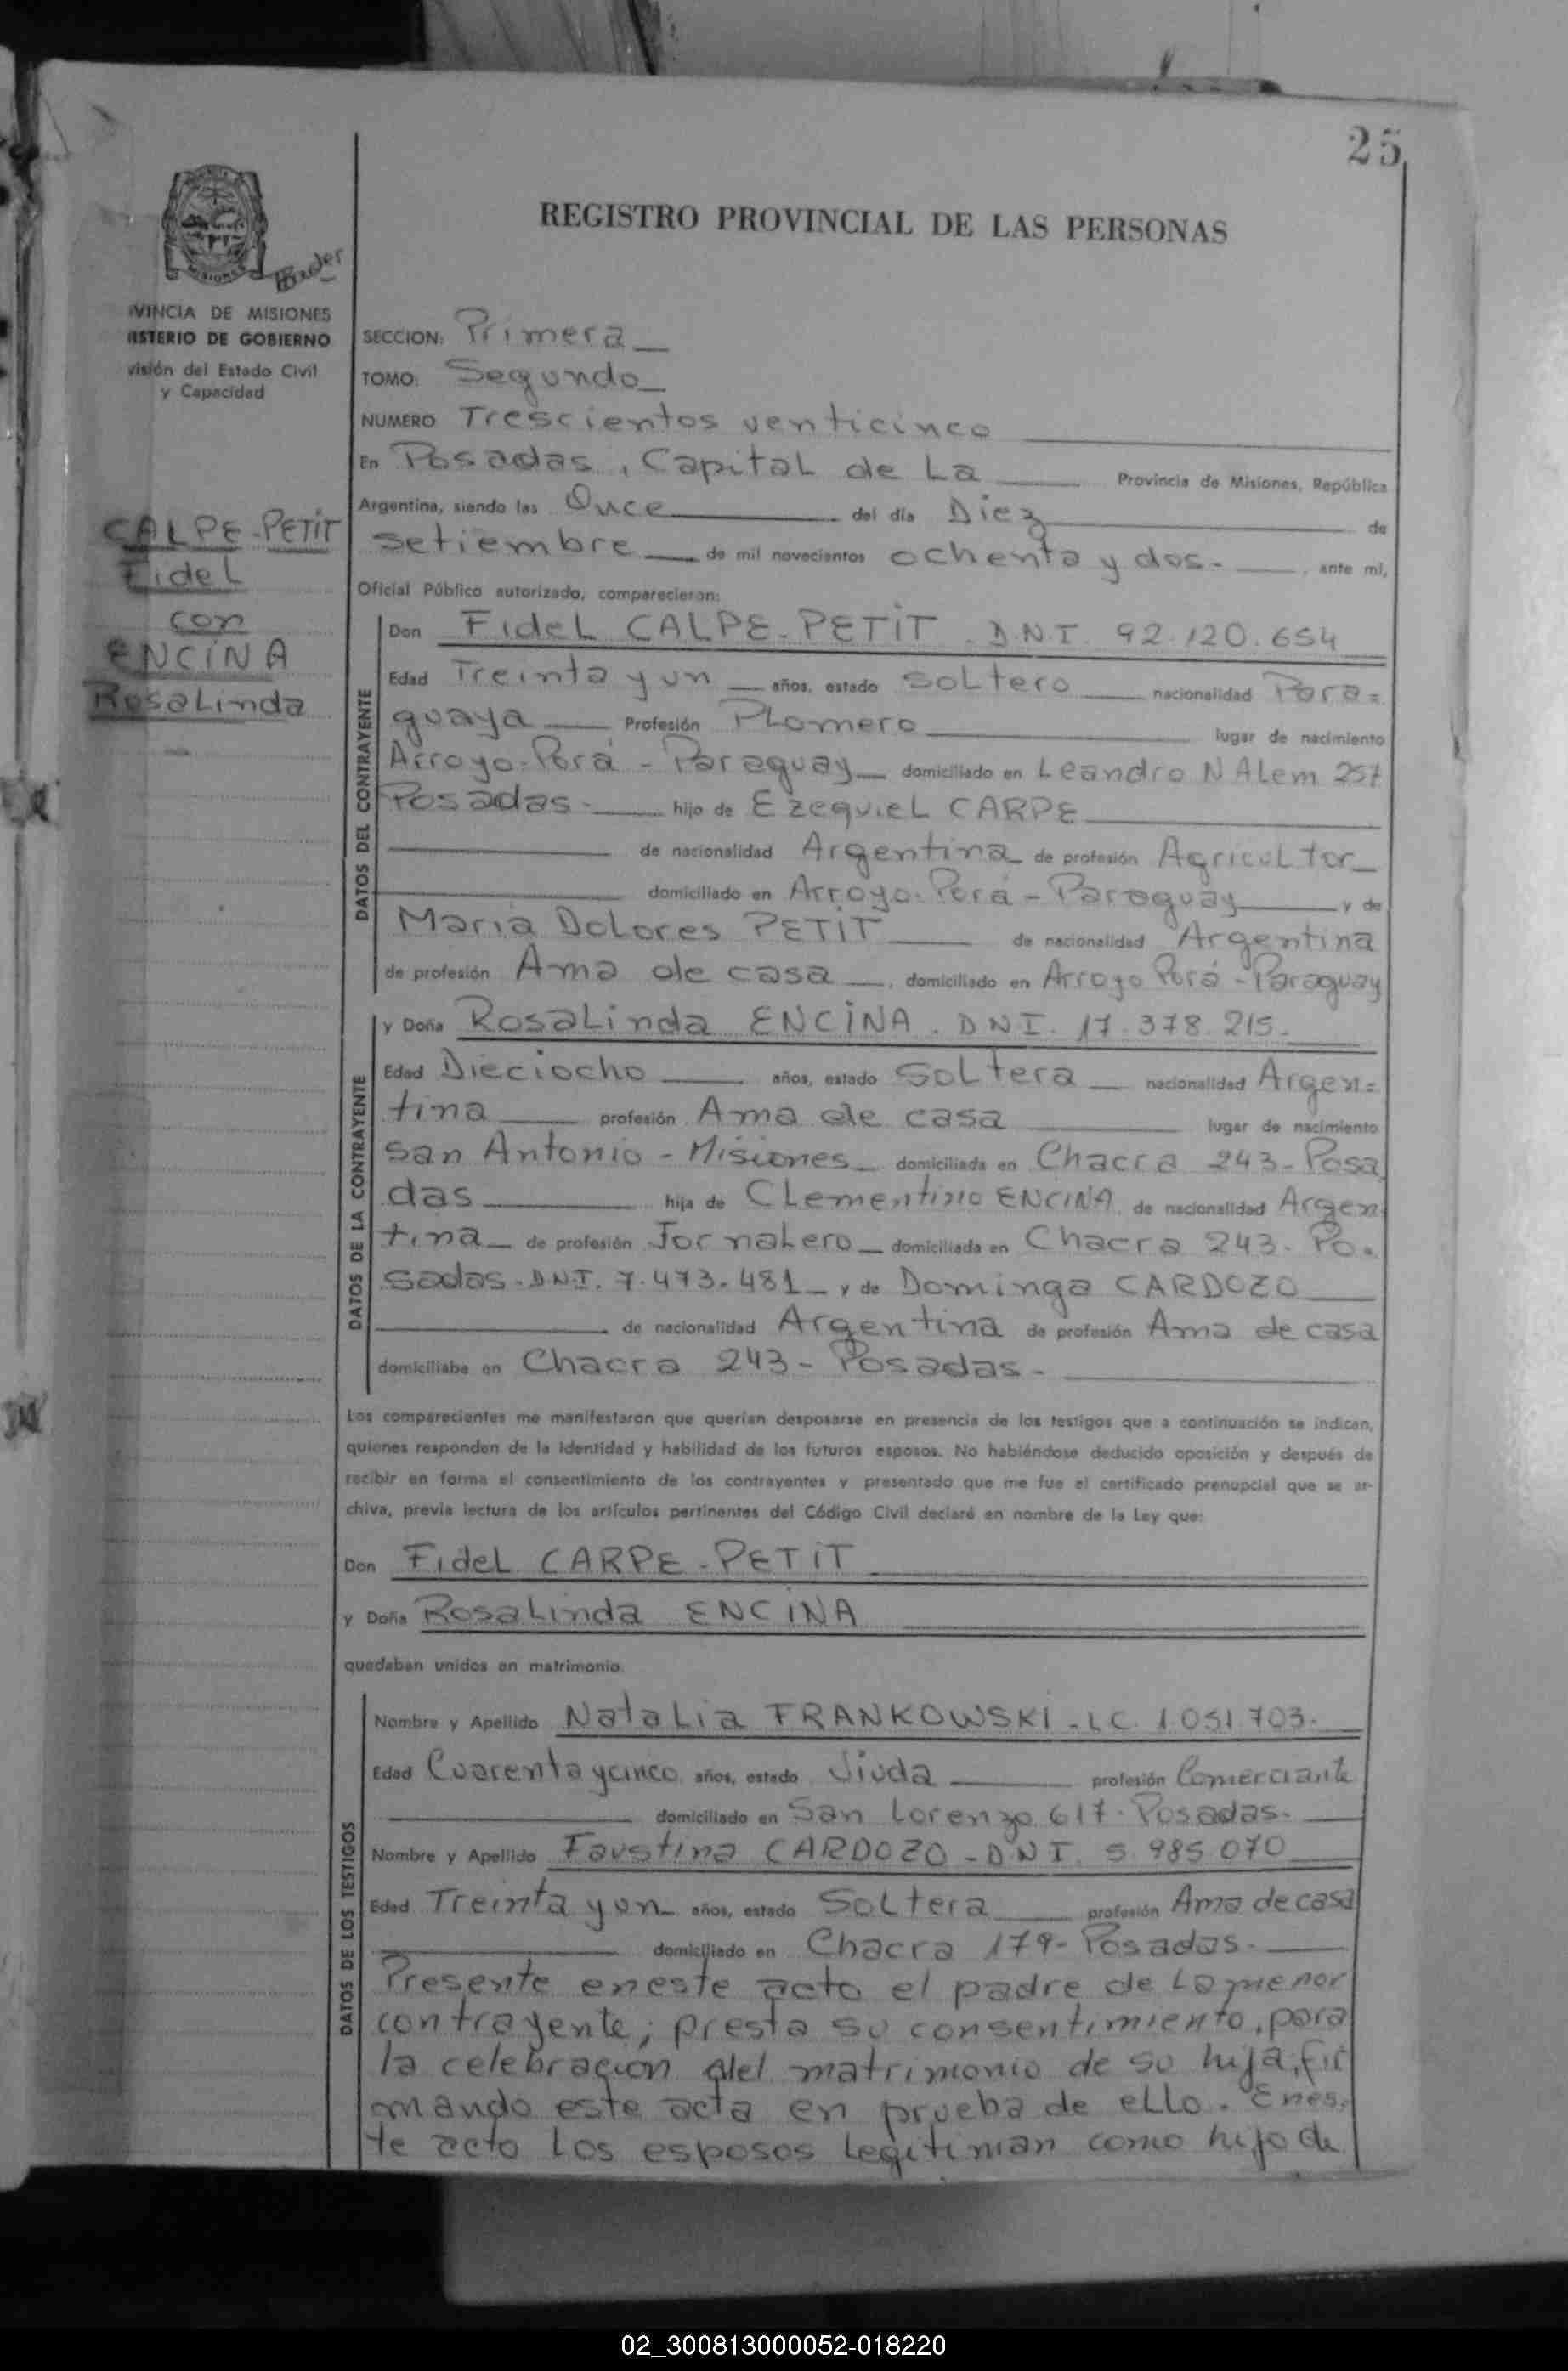 25
REGISTRO PROVINCIAL DE LAS PERSONAS
VINCIA DE MISIONES
ISTERIO DE GOBIERNO
visión del Estado Civil
y Capacidad
CALPE-PETIT
Fidel
con
ENCINA
Rosalinda
SECCION: Primera
TOMO: Segundo
NUMERO Trescientos venticinco
En Posadas, Capital de La Provincia de Misiones, República
Argentina, siendo las Once del día Diez de
setiembre de mil novecientos ochenta y dos.- , ante mí,
Oficial Público autorizado, comparecieron:
DATOS DEL CONTRAYENTE
Don Fidel CALPE-PETIT - D.N.I. 92.120.654
Edad Treinta y un años, estado Soltero nacionalidad Para=
guaya Profesión Plomero lugar de nacimiento
Arroyo-Porá - Paraguay domiciliado en Leandro N Alem 257
Posadas.- hijo de Ezequiel CARPE
de nacionalidad Argentina de profesión Agricultor
domiciliado en Arroyo-Porá - Paraguay y de
María Dolores PETIT de nacionalidad Argentina
de profesión Ama de casa , domiciliado en Arroyo Porá - Paraguay
DATOS DE LA CONTRAYENTE
y Doña Rosalinda ENCINA . DNI. 17.378.215.
Edad Dieciocho años, estado Soltera nacionalidad Argen=
tina profesión Ama de casa lugar de nacimiento
San Antonio - Misiones domiciliada en Chacra 243- Posa
das hija de Clementino ENCINA de nacionalidad Argen
tina de profesión Jornalero domiciliada en Chacra 243- Po.
sadas. DNI. 7.473.481 y de Dominga CARDOZO
de nacionalidad Argentina de profesión Ama de casa
domiciliaba en Chacra 243 - Posadas -
Los comparecientes me manifestaron que querían desposarse en presencia de los testigos que a continuación se indican,
quienes responden de la identidad y habilidad de los futuros esposos. No habiéndose deducido oposición y después de
recibir en forma el consentimiento de los contrayentes y presentado que me fue el certificado prenupcial que se ar-
chiva, previa lectura de los artículos pertinentes del Código Civil declaré en nombre de la Ley que:
Don Fidel CARPE-PETIT
y Doña Rosalinda ENCINA
quedaban unidos en matrimonio.
DATOS DE LOS TESTIGOS
Nombre y Apellido Natalia FRANKOWSKI - LC. 1.051.703.
Edad Cuarenta y cinco años, estado Viuda profesión Comerciante
domiciliado en San Lorenzo 617- Posadas.
Nombre y Apellido Faustina CARDOZO - DNI. 5.985.070
Edad Treinta y un años, estado Soltera profesión Ama de casa
domiciliado en Chacra 179- Posadas.-
Presente en este acto el padre de la menor
contrayente, presta su consentimiento, para
la celebración del matrimonio de su hija, fir
mando este acta en prueba de ello. En es.
te acto los esposos legitiman como hijo de
02_300813000052-018220